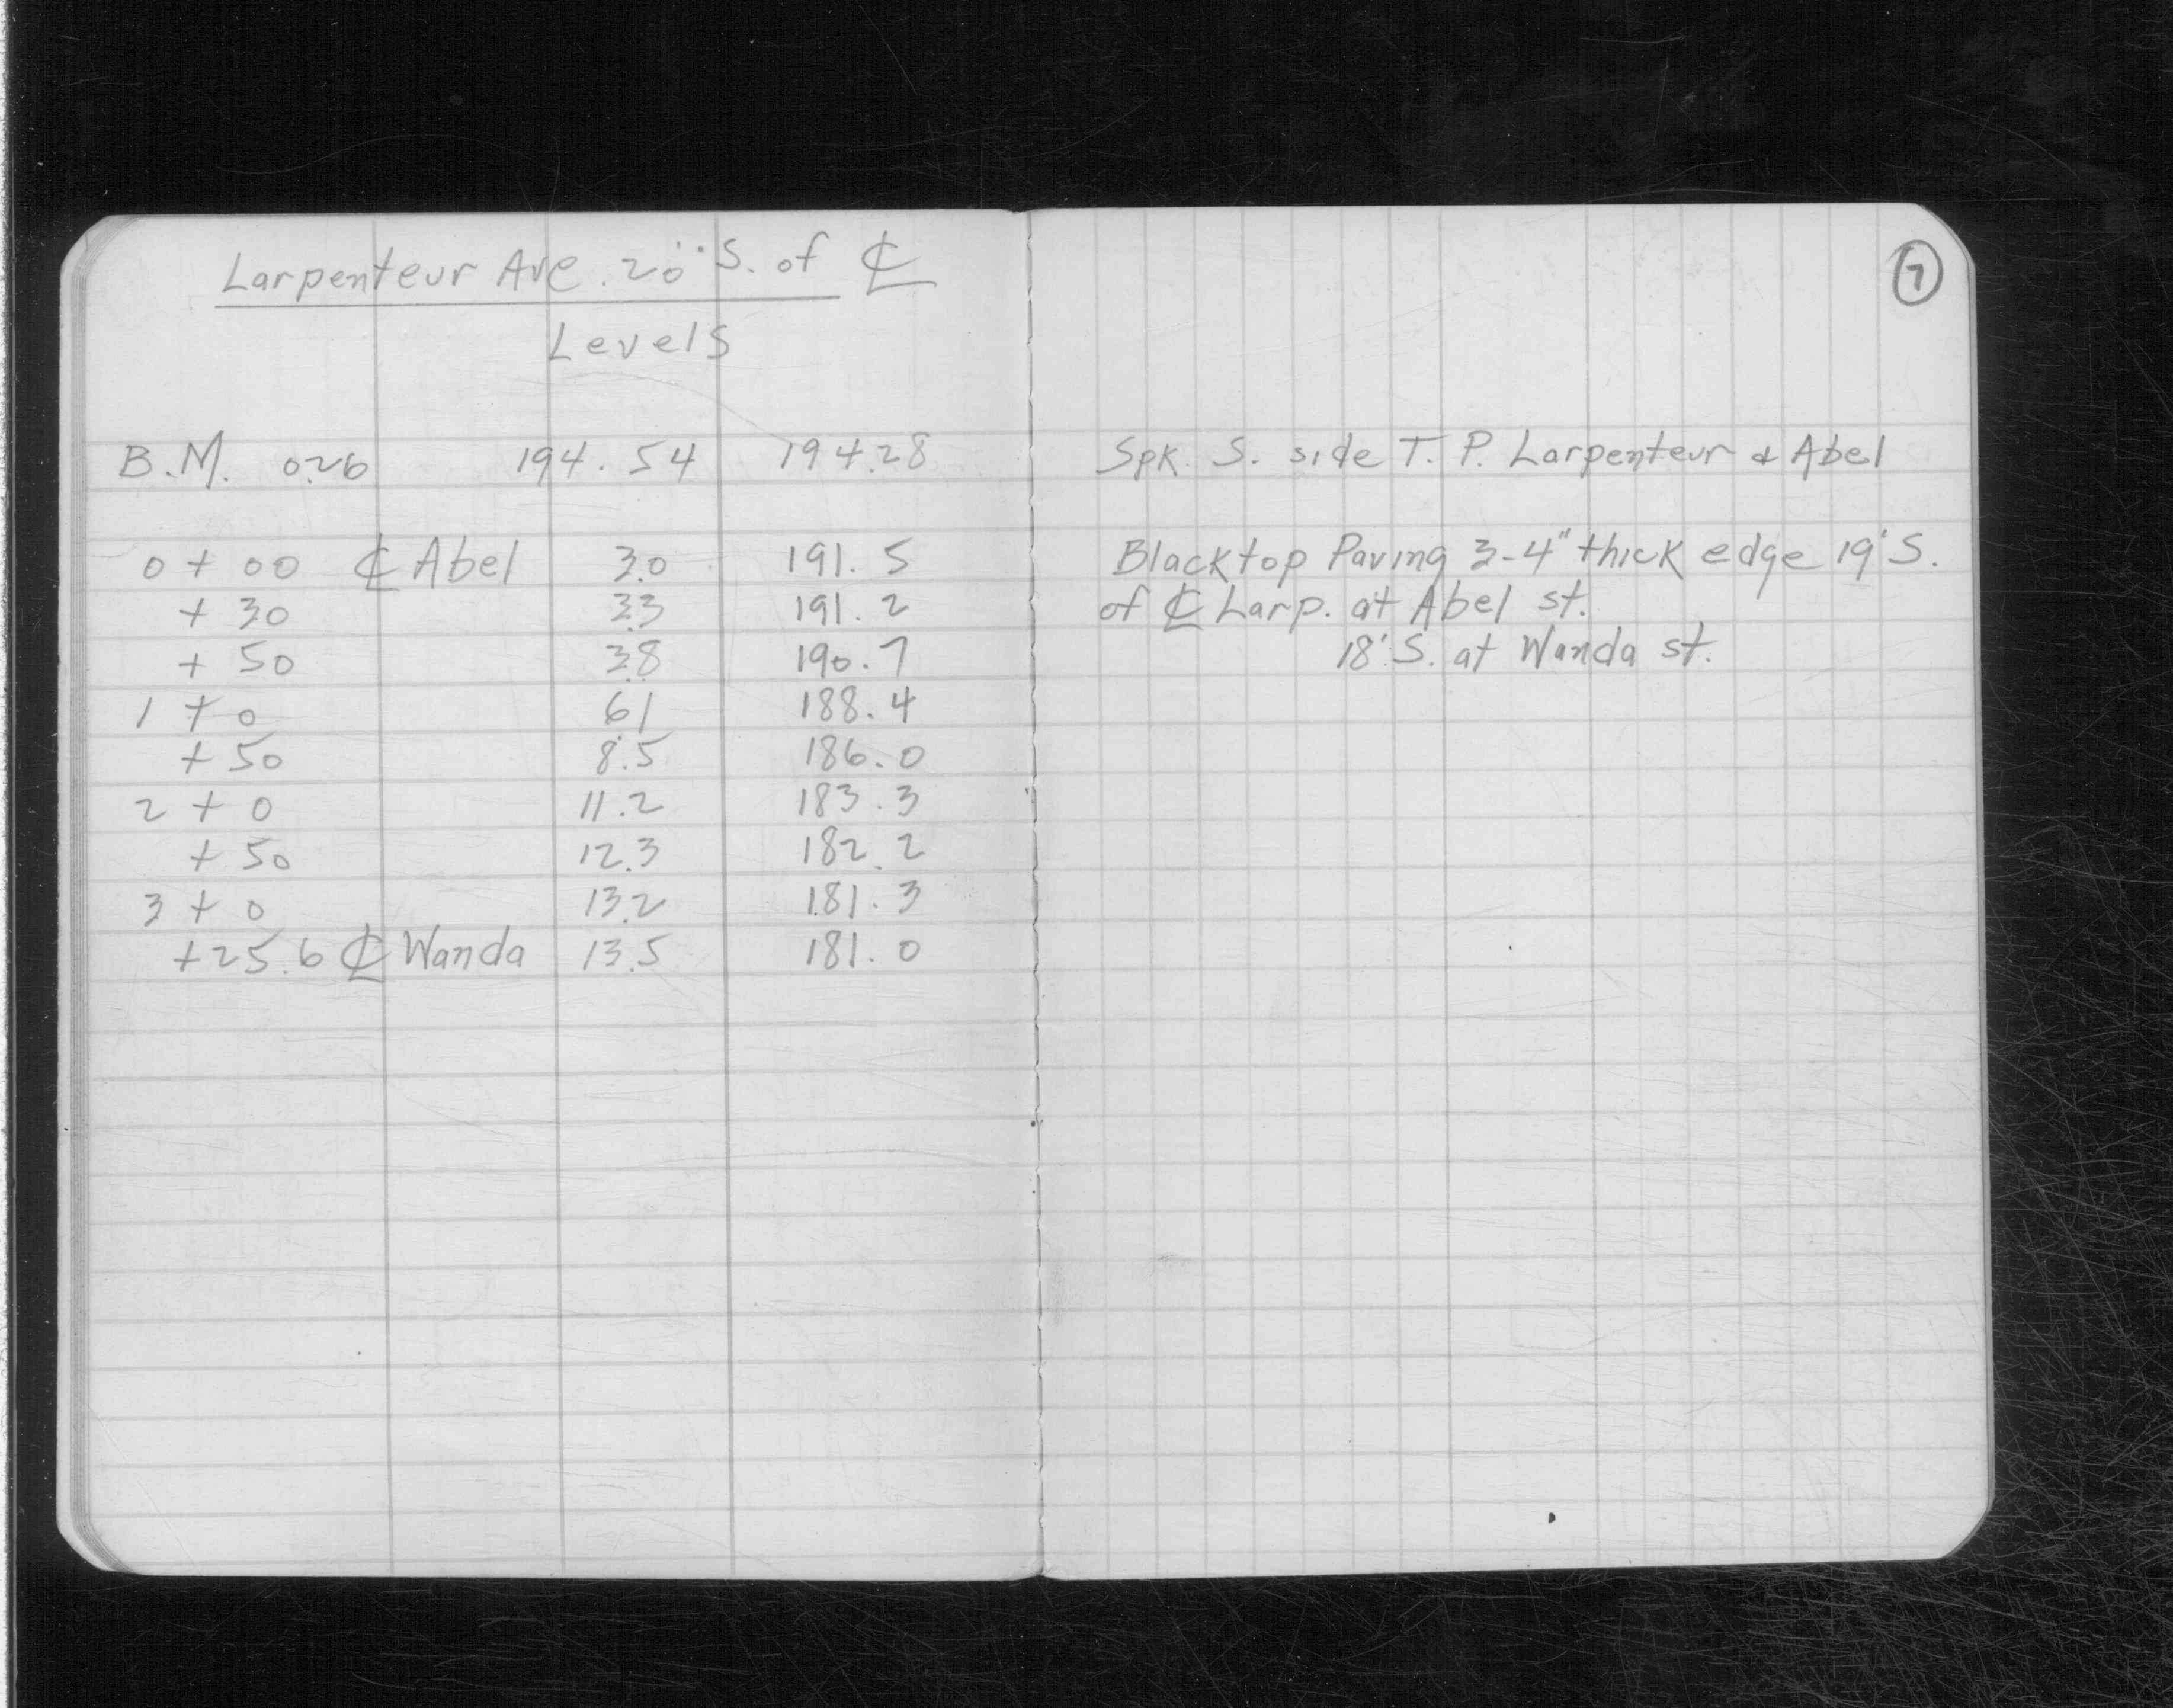 Larpenteur Ave. 20' S. of ℄
Levels
B.M. 0.26 194.54 194.28
0+00 ℄ Abel 3.0 191.5
+30 3.3 191.2
+50 3.8 190.7
1+0 6.1 188.4
+50 8.5 186.0
2+0 11.2 183.3
+50 12.3 182.2
3+0 13.2 181.3
+25.6 ℄ Wanda 13.5 181.0
7
Spk. S. side T. P. Larpenteur & Abel
Blacktop Paving 3-4" thick edge 19' S.
of ℄ Larp. at Abel st.
18' S. at Wanda st.